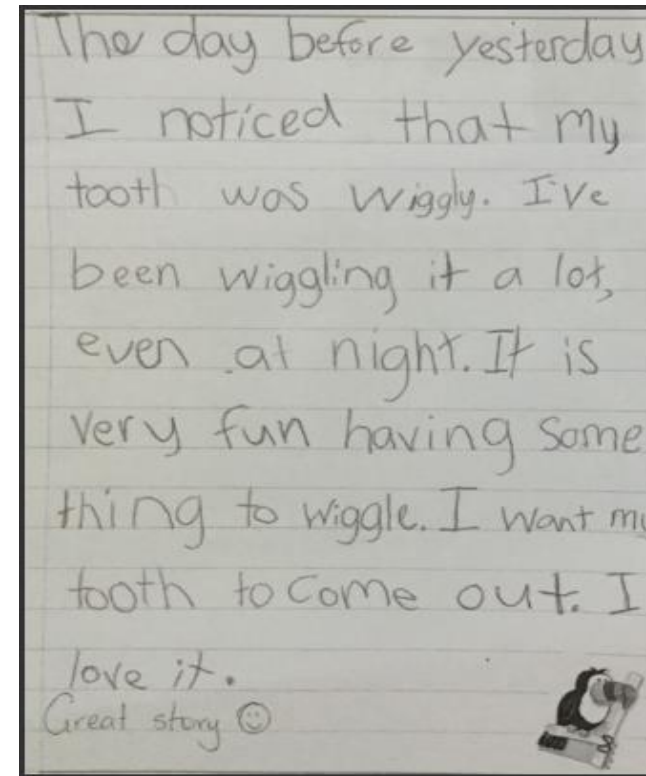 The day before yesterday
I noticed that my
tooth was wiggly. I've
been wiggling it a lot,
even at night. It is
very fun having some
thing to wiggle. I want my
tooth to come out. I
love it.
Great story ☺